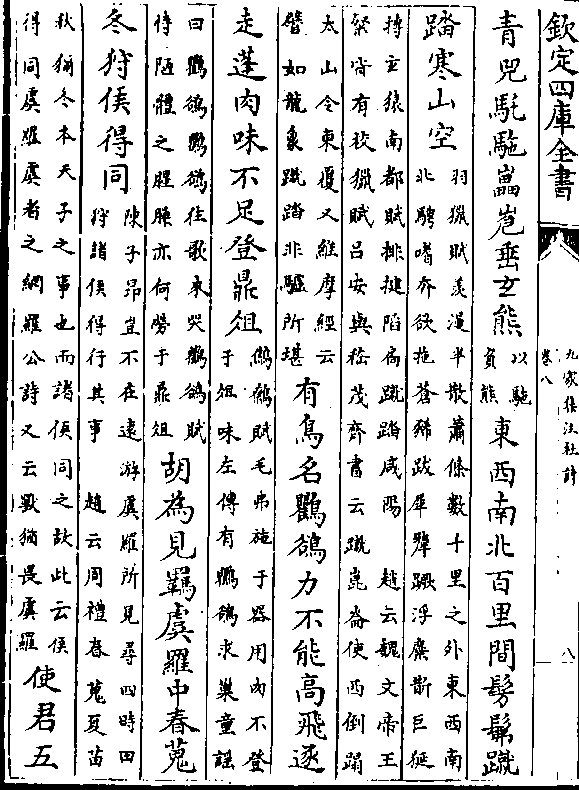 欽定四庫全書
九家集注杜詩
卷八
八
青兕馲駞㠥峞垂玄熊
以駞
負熊
東西南北百里間髣髴蹴
踏寒山空
羽獵賦羨漫半散蕭條數十里之外東西南
北騁嗜奔欲拖蒼豨跋犀犛蹶浮麋斮巨狿
搏玄猿南都賦排揵陷扃蹴踏咸陽 趙云魏文帝王
粲皆有校獵賦呂安與嵇茂齊書云蹴崑崙使西倒蹋
太山令東覆又維摩經云
譬如龍象蹴踏非驢所堪
有鳥名鸜鵒力不能高飛逐
走蓬肉味不足登鼎俎
鷦鷯賦毛弗施于器用肉不登
于俎味左傳有鸜鵒求巢童謡
曰鸜鵒鸜鵒往歌來哭鸜鵒賦
恃陋體之腥臊亦何勞于鼎俎
胡為見羈虞羅中春蒐
冬狩侯得同
陳子昂豈不在遠游虞羅所見尋四時田
狩諸侯得行其事 趙云周禮春蒐夏苗
秋獮冬本天子之事也而諸侯同之故此云侯
得同虞羅虞者之網羅公詩又云獸猶畏虞羅
使君五